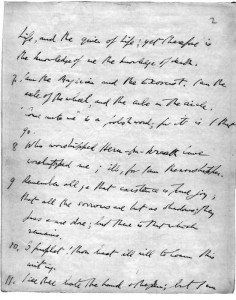 2
life, and the giver of life; yet therefore is
the knowledge of me the knowledge of death.
7. I am the Magician and the Exorcist. I am the
axle of the wheel, and the cube in the circle.
"Come unto me" is a foolish word; for it is I that
go.
8 Who worshipped Heru-pa-kraath have
worshipped me; ill, for I am the worshipper.
9 Remember all ye that existence is pure joy;
that all the sorrows are but as shadows; they
pass & are done; but there is that which
remains.
10. O prophet! thou hast ill will to learn this
writing.
11. I see thee hate the hand & the pen; but I am